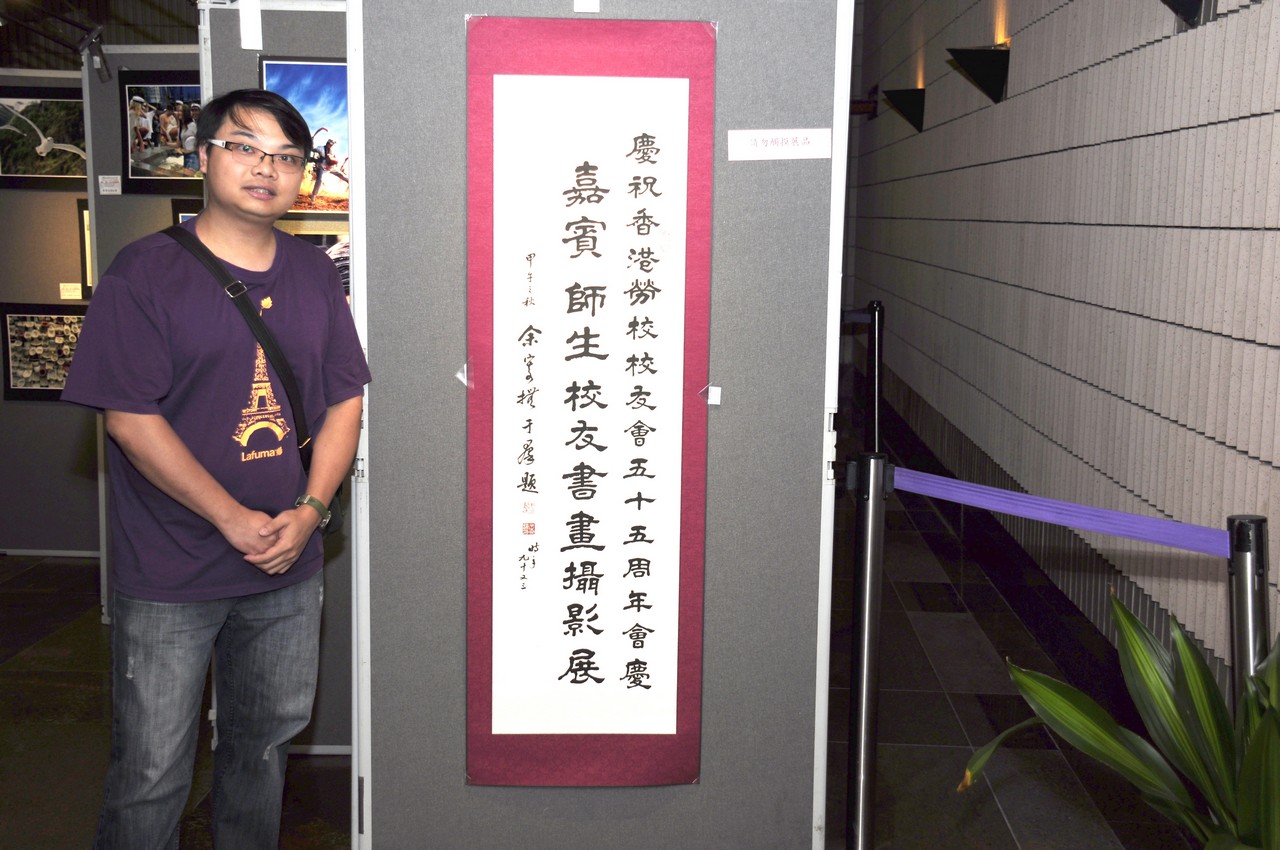 慶祝香港勞校校友會五十五周年會慶
嘉賓 師生 校友書畫攝影展
甲午之秋 余寄撫于題
時年九十又三
請勿觸摸展品
Lafuma